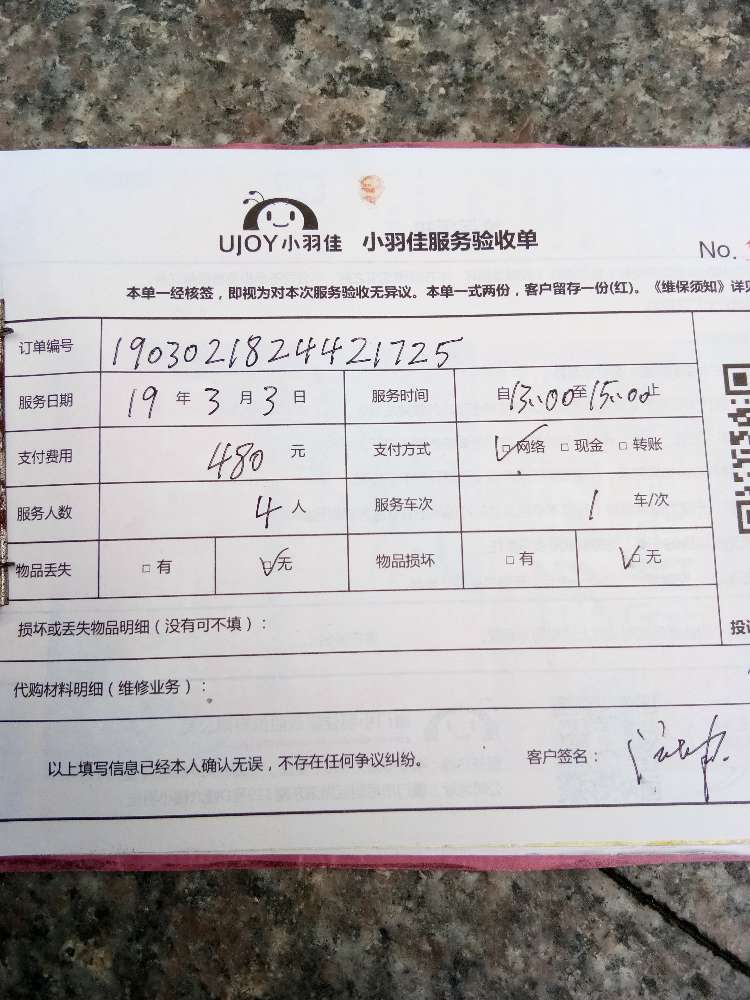 UJOY小羽佳 小羽佳服务验收单
No.
本单一经核签，即视为对本次服务验收无异议。本单一式两份，客户留存一份(红)。《维保须知》详见
订单编号 190302182442 1725
服务日期 19 年 3 月 3 日 服务时间 自13:00至15:00止
支付费用 480 元 支付方式 ☑网络 □现金 □转账
服务人数 4 人 服务车次 1 车/次
物品丢失 □有 ☑无 物品损坏 □有 ☑无
损坏或丢失物品明细（没有可不填）：
投诉
代购材料明细（维修业务）：
以上填写信息已经本人确认无误，不存在任何争议纠纷。 客户签名：